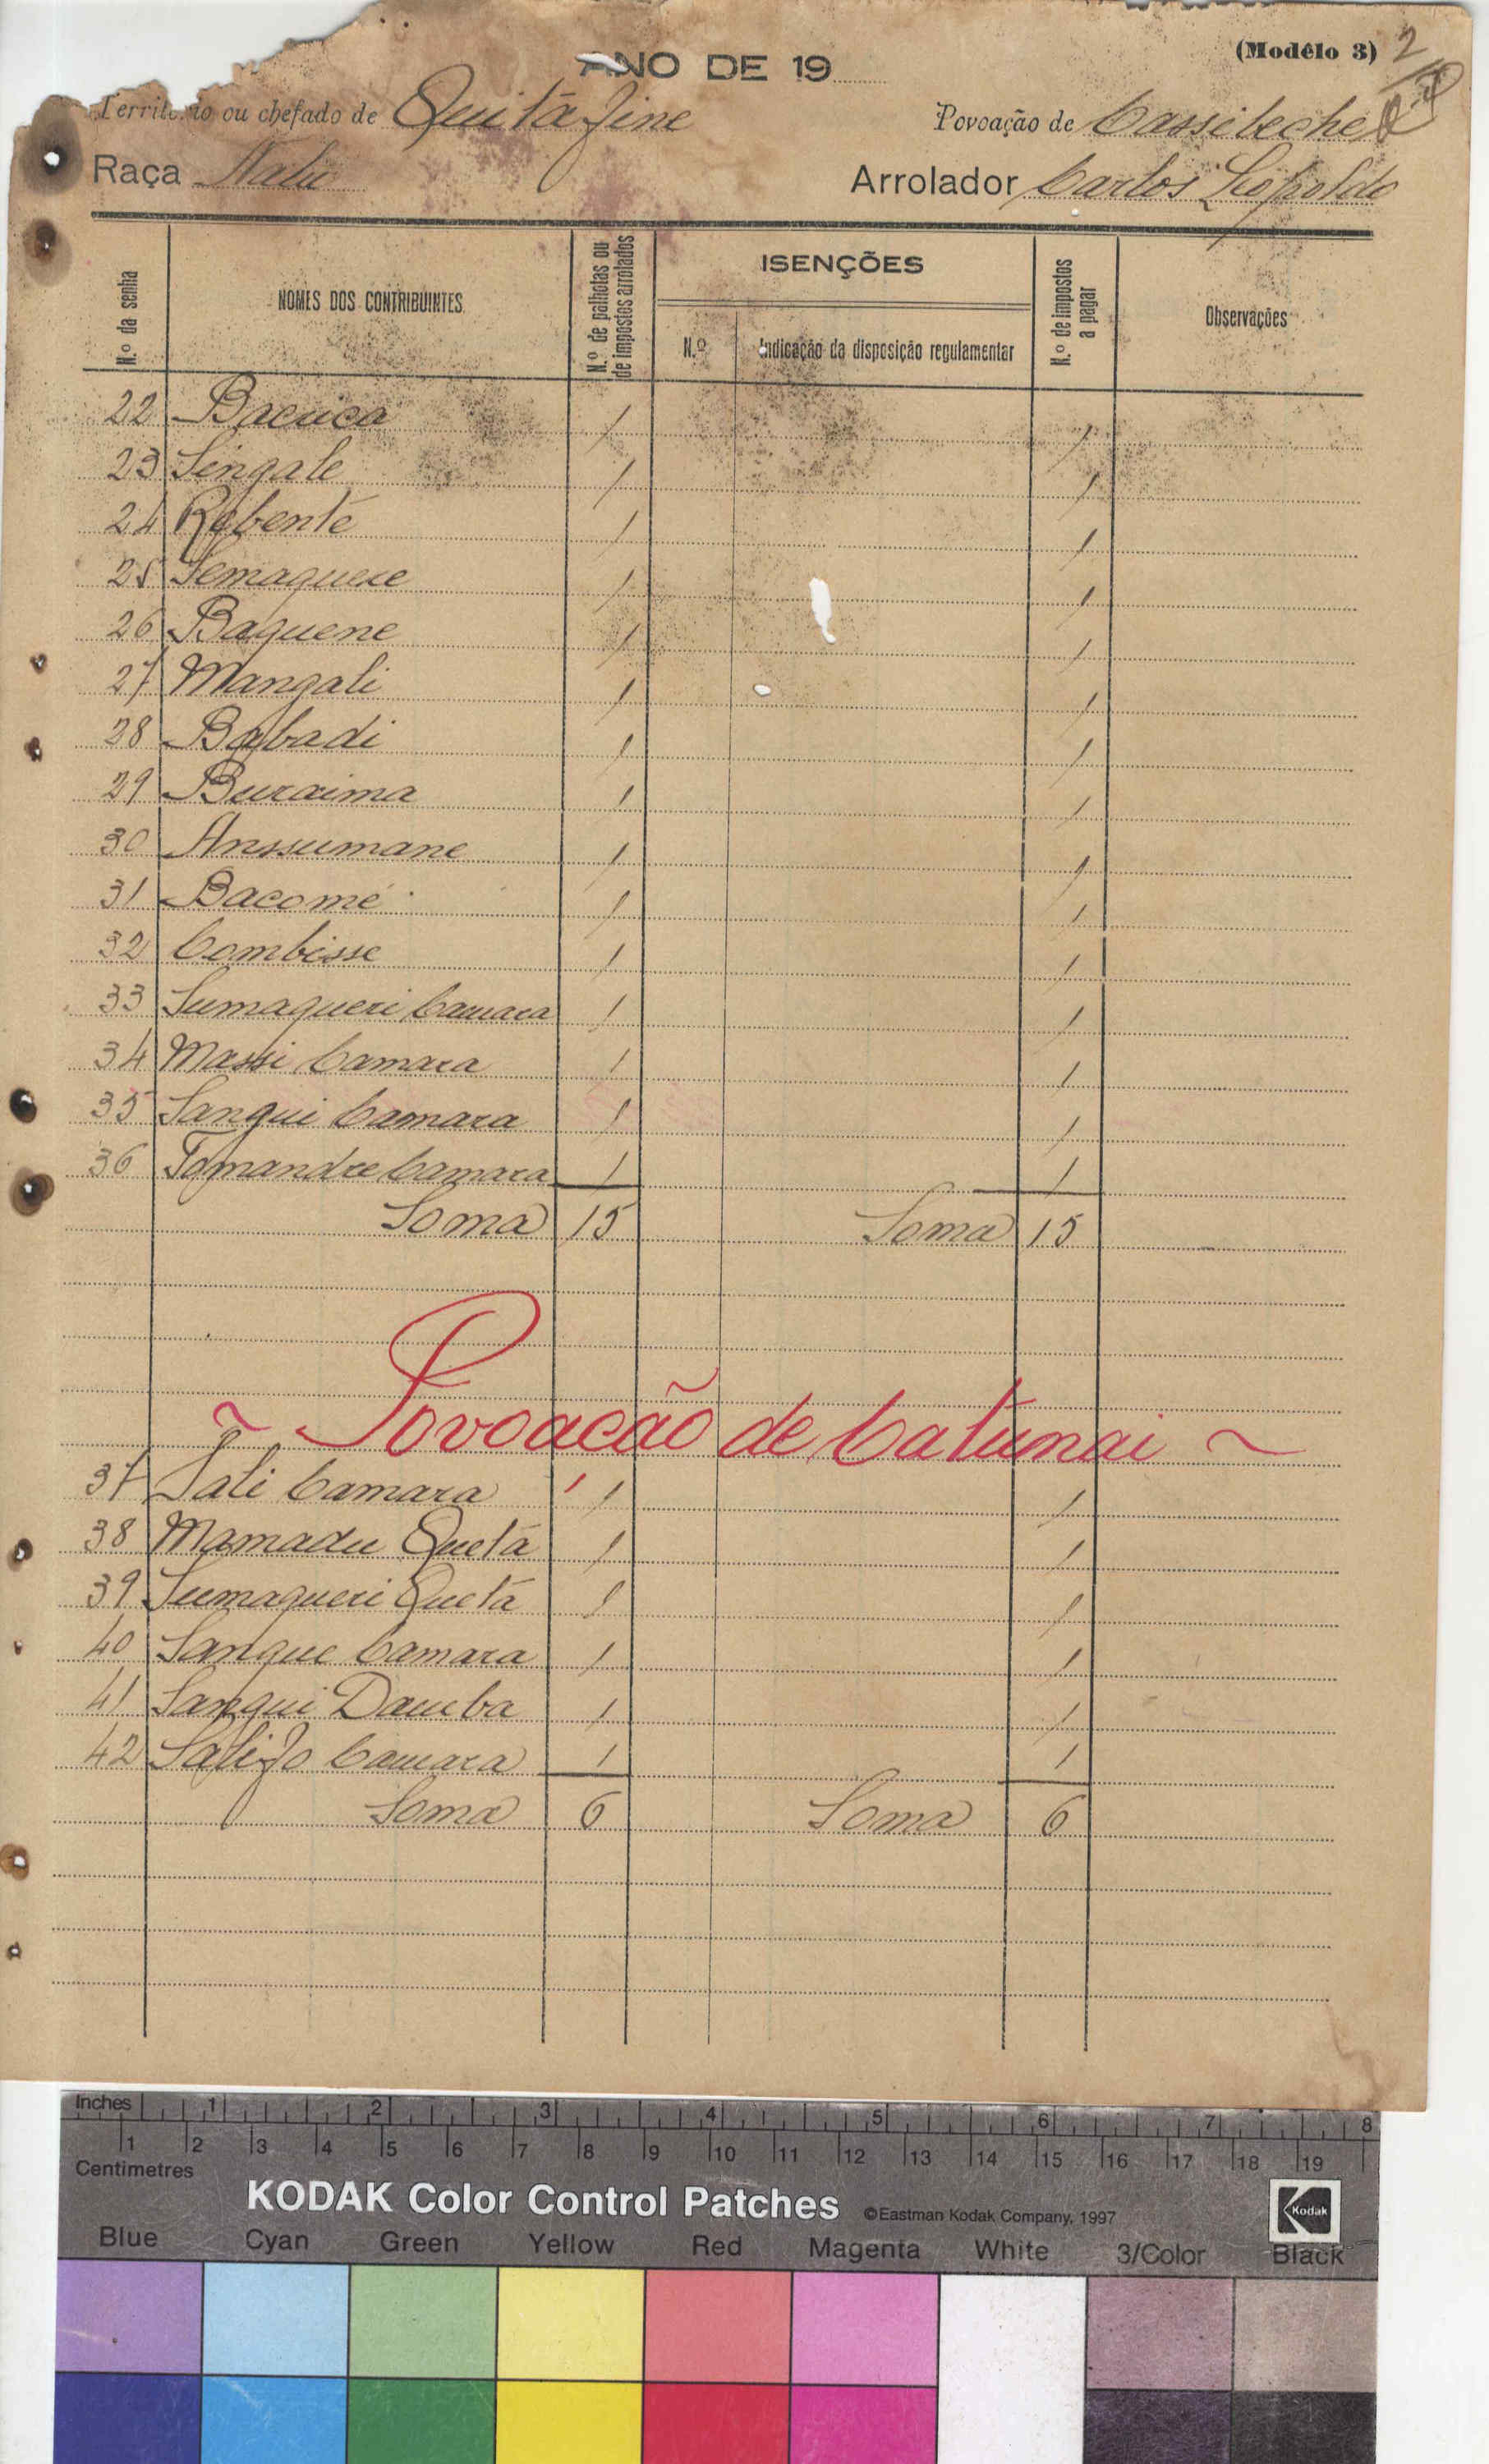 (Modêlo 3) 2
ANO DE 19
Território ou chefado de Quitáfine Povoação de Cassibeche
Raça Nalú Arrolador Carlos Leopoldo
N.º da senha NOMES DOS CONTRIBUINTES N.º de palhotas ou de impostos arrolados ISENÇÕES N.º Indicação da disposição regulamentar N.º de impostos a pagar Observações
22 Bacuca 1 1
23 Singale 1 1
24 Rebenté 1 1
25 Semaquere 1 1
26 Baquene 1 1
27 Mangali 1 1
28 Babadi 1 1
29 Buraima 1 1
30 Anssumane 1 1
31 Bacomé 1 1
32 Combisse 1 1
33 Sumaqueri Camara 1 1
34 Massi Camara 1 1
35 Sangui Camara 1 1
36 Tomandre Camara 1 1
Soma 15 Soma 15
~ Povoacão de Catunai ~
37 Sali Camara 1 1
38 Mamadu Quetá 1 1
39 Sumaqueri Quetá 1 1
40 Sangue Camara 1 1
41 Sangui Daueba 1 1
42 Salifo Camara 1 1
Soma 6 Soma 6
Inches 1 2 3 4 5 6 7 8
Centimetres 1 2 3 4 5 6 7 8 9 10 11 12 13 14 15 16 17 18 19
KODAK Color Control Patches ©Eastman Kodak Company, 1997 Kodak
Blue Cyan Green Yellow Red Magenta White 3/Color Black